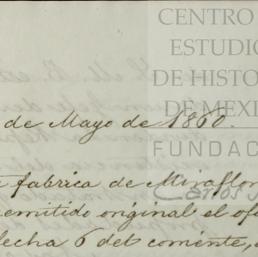 CENTRO
ESTUDIO
DE HISTOR
DE MEXI
FUNDAC
de Mayo de 1860.
fabrica de Miraflor
Carlos S
emitido original el ofi
fecha 6 del corriente,